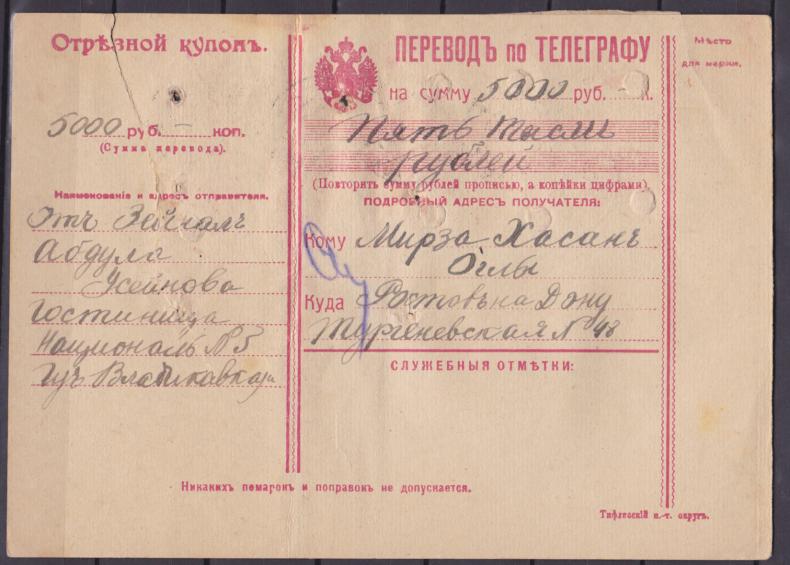 Отрѣзной купонъ.
5000 руб. — коп.
(Сумма перевода).
Наименованіе и адресъ отправителя.
Отъ Зейналъ
Абдула
Усейнова
Гостинница
Националь № 5
Владикавказа
ПЕРЕВОДЪ по ТЕЛЕГРАФУ
на сумму 5000 руб. — к.
Пять тысячъ
рублей
(Повторить сумму рублей прописью, а копѣйки цифрами).
ПОДРОБНЫЙ АДРЕСЪ ПОЛУЧАТЕЛЯ:
Кому Мирза Хасанъ
Оглы
Куда Ростовъ на Дону
Тургеневская № 48
СЛУЖЕБНЫЯ ОТМѢТКИ:
Мѣсто
для марки.
Никакихъ помарокъ и поправокъ не допускается.
Тифлисскій п.-т. округъ.